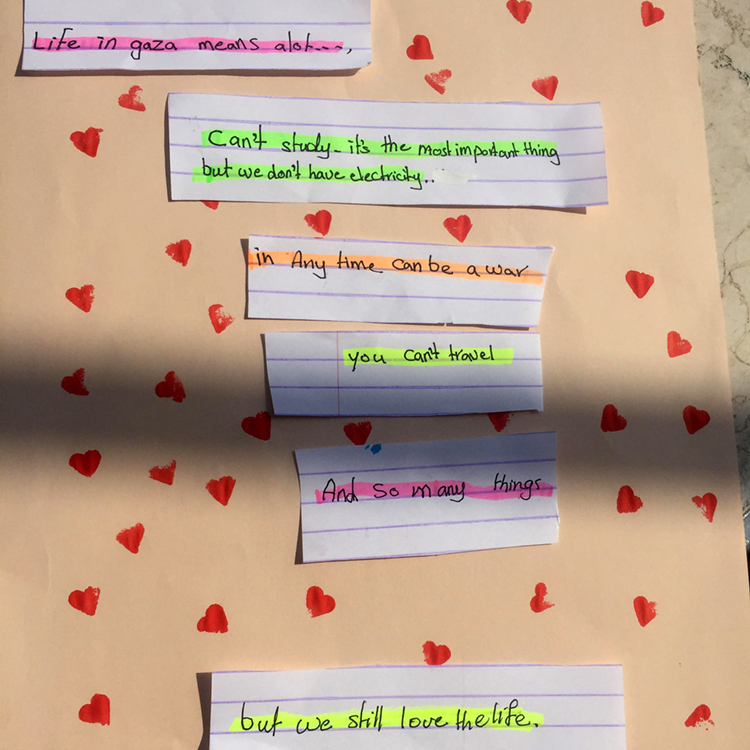 Life in gaza means alot----,
Can't study- it's the most important thing
but we don't have electricity..
in Any time can be a war
you can't travel
And so many things
but we still love the life.